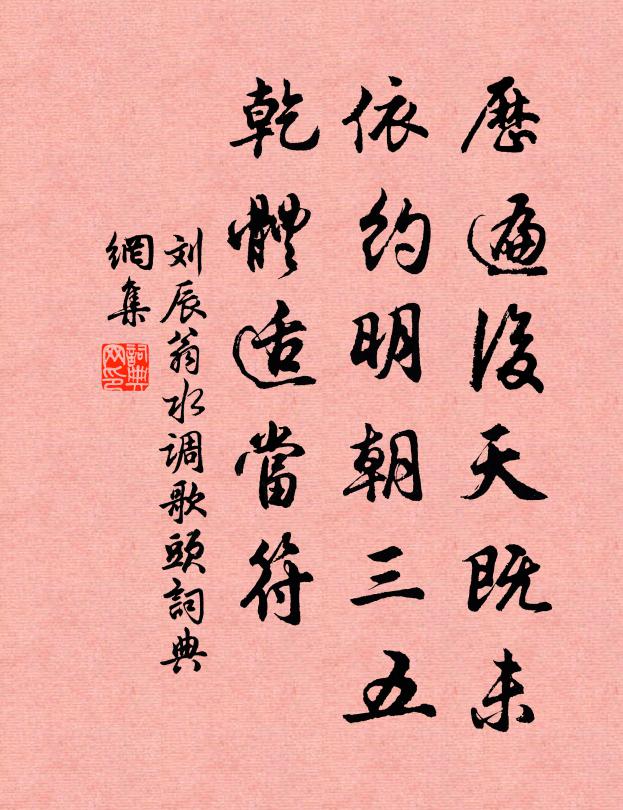 歷遍後天既未
依约明朝三五
乾體适當符
刘辰翁水调歌頭詞典
網集
詞典
网印